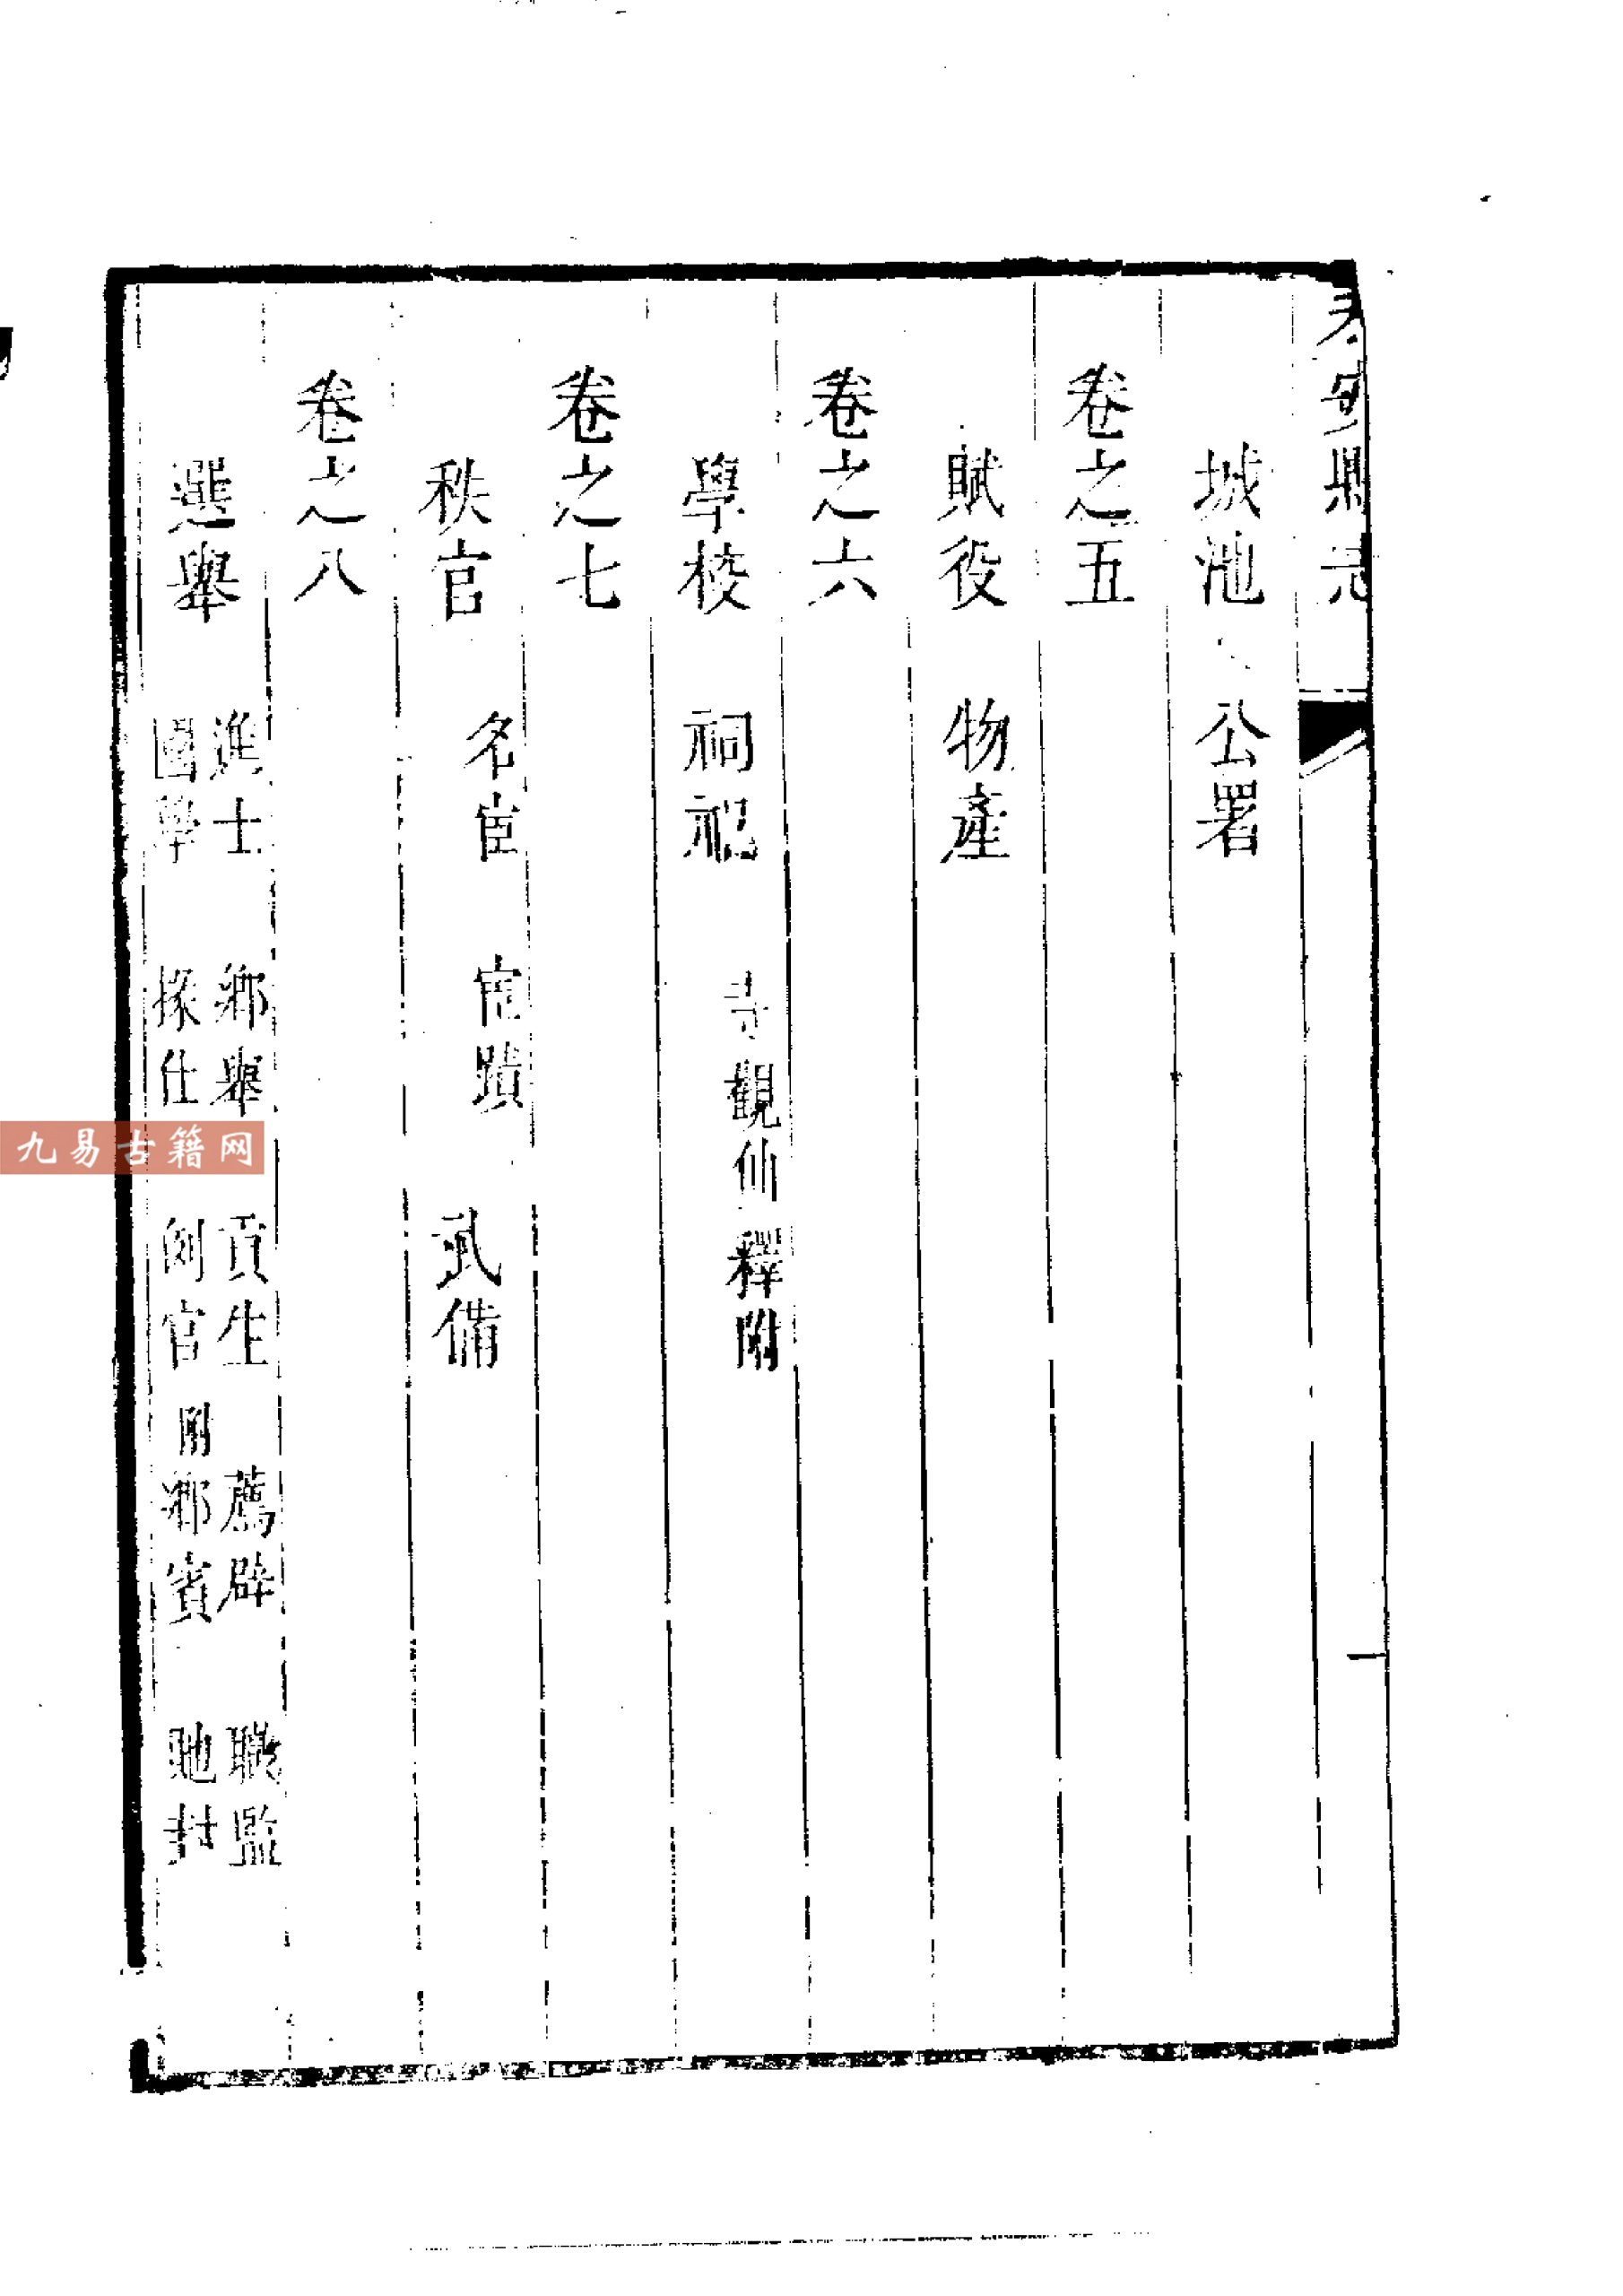 安縣志
一
城池 公署
卷之五
賦役 物產
卷之六
學校 祠祀 寺觀仙釋附
卷之七
秩官 名宦 宦蹟 武備
卷之八
選舉 進士 鄉舉 貢生 薦辟 職監
國學 掾仕 例官 附鄉賓 貤封
九易古籍网